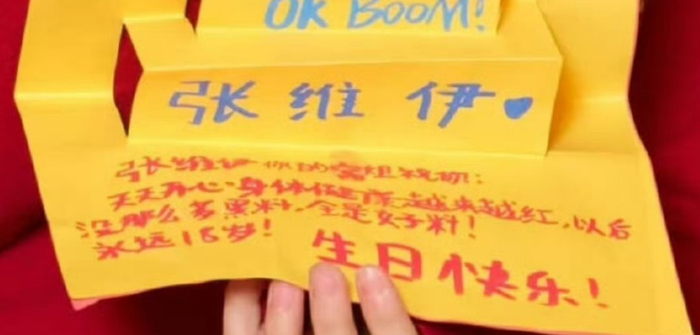 OK BOOM!
张维伊
张维伊你的室姐祝你:
天天开心,身体健康,越来越红,以后
没那么多黑料,全是好料!
永远18岁!
生日快乐!